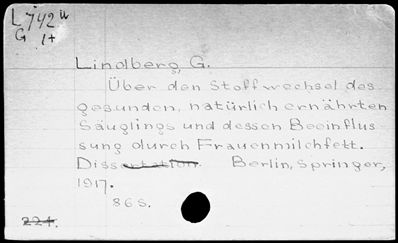 L742u
G 1+
Lindberg, G.
Über den Stoffwechsel des
gesunden, natürlich ernährten
Säuglings und dessen Beeinflus
sung durch Frauenmilchfett.
Dissertation Berlin, Springer,
1917.
86 S.
224.